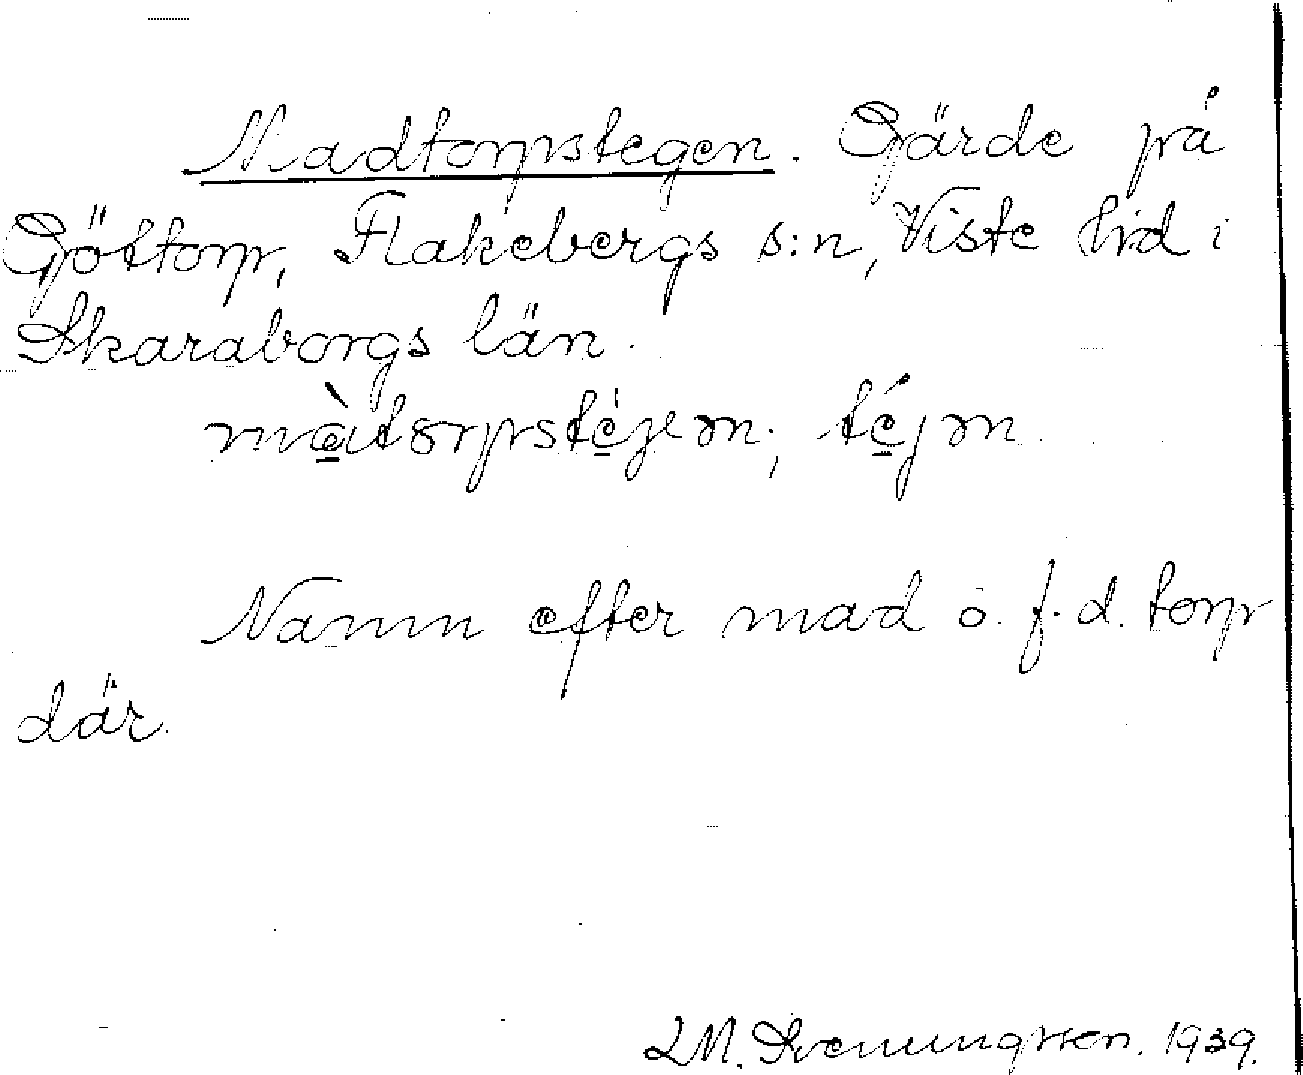 Madtorpstegen. Gärde på
Göttorp, Flakebergs s:n, Viste hrd i
Skaraborgs län.
Namn efter mad o. f.d. torp
där.
L.M. Svenungsson. 1939.